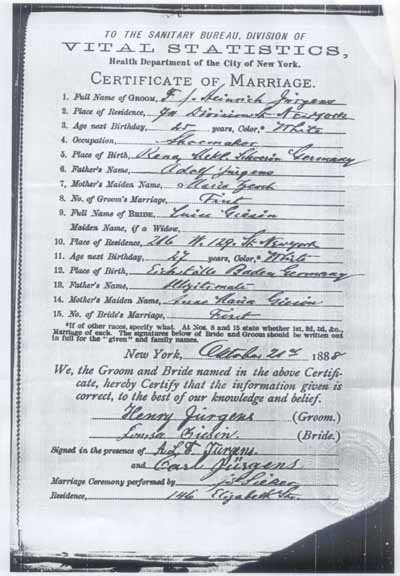 TO THE SANITARY BUREAU, DIVISION OF
VITAL STATISTICS,
Health Department of the City of New York.
CERTIFICATE OF MARRIAGE.
1. Full Name of GROOM, F. J. Heinrich Jürgens
2. Place of Residence, Division St New York
3. Age next Birthday, 25 years, Color,* White
4. Occupation, Shoemaker
5. Place of Birth, Schwerin Germany
6. Father's Name, Adolf Jürgens
7. Mother's Maiden Name, Maria
8. No. of Groom's Marriage, First
9. Full Name of BRIDE, Luise Giesin
Maiden Name, if a Widow,
10. Place of Residence, 216 W. 129. St. New york
11. Age next Birthday, 27 years, Color,* White
12. Place of Birth, Baden Germany
13. Father's Name, Illegitimate
14. Mother's Maiden Name, Anna Maria Giesin
15. No. of Bride's Marriage, First
*If of other races, specify what. At Nos. 8 and 15 state whether 1st, 2d, 3d, &c.,
Marriage of each. The signatures below of Bride and Groom should be written out
in full for the "given" and family names.
New York, Oktober 21st 1888
We, the Groom and Bride named in the above Certifi-
cate, hereby Certify that the information given is
correct, to the best of our knowledge and belief.
Henry Jürgens (Groom.)
Louisa Giesin (Bride.)
Signed in the presence of Jürgens
and Carl Jürgens
Marriage Ceremony performed by
Residence, 146 Elizabeth Str.